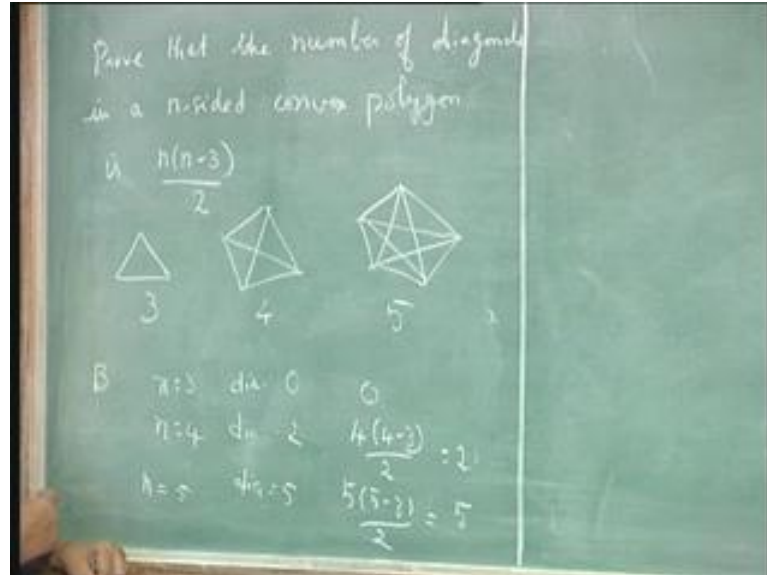 Prove that the number of diagonals
in a n-sided convex polygon
is n(n-3)/2
3 4 5
B n=3 dia 0 0
n=4 dia 2 4(4-3)/2 = 2
n=5 dia=5 5(5-3)/2 = 5